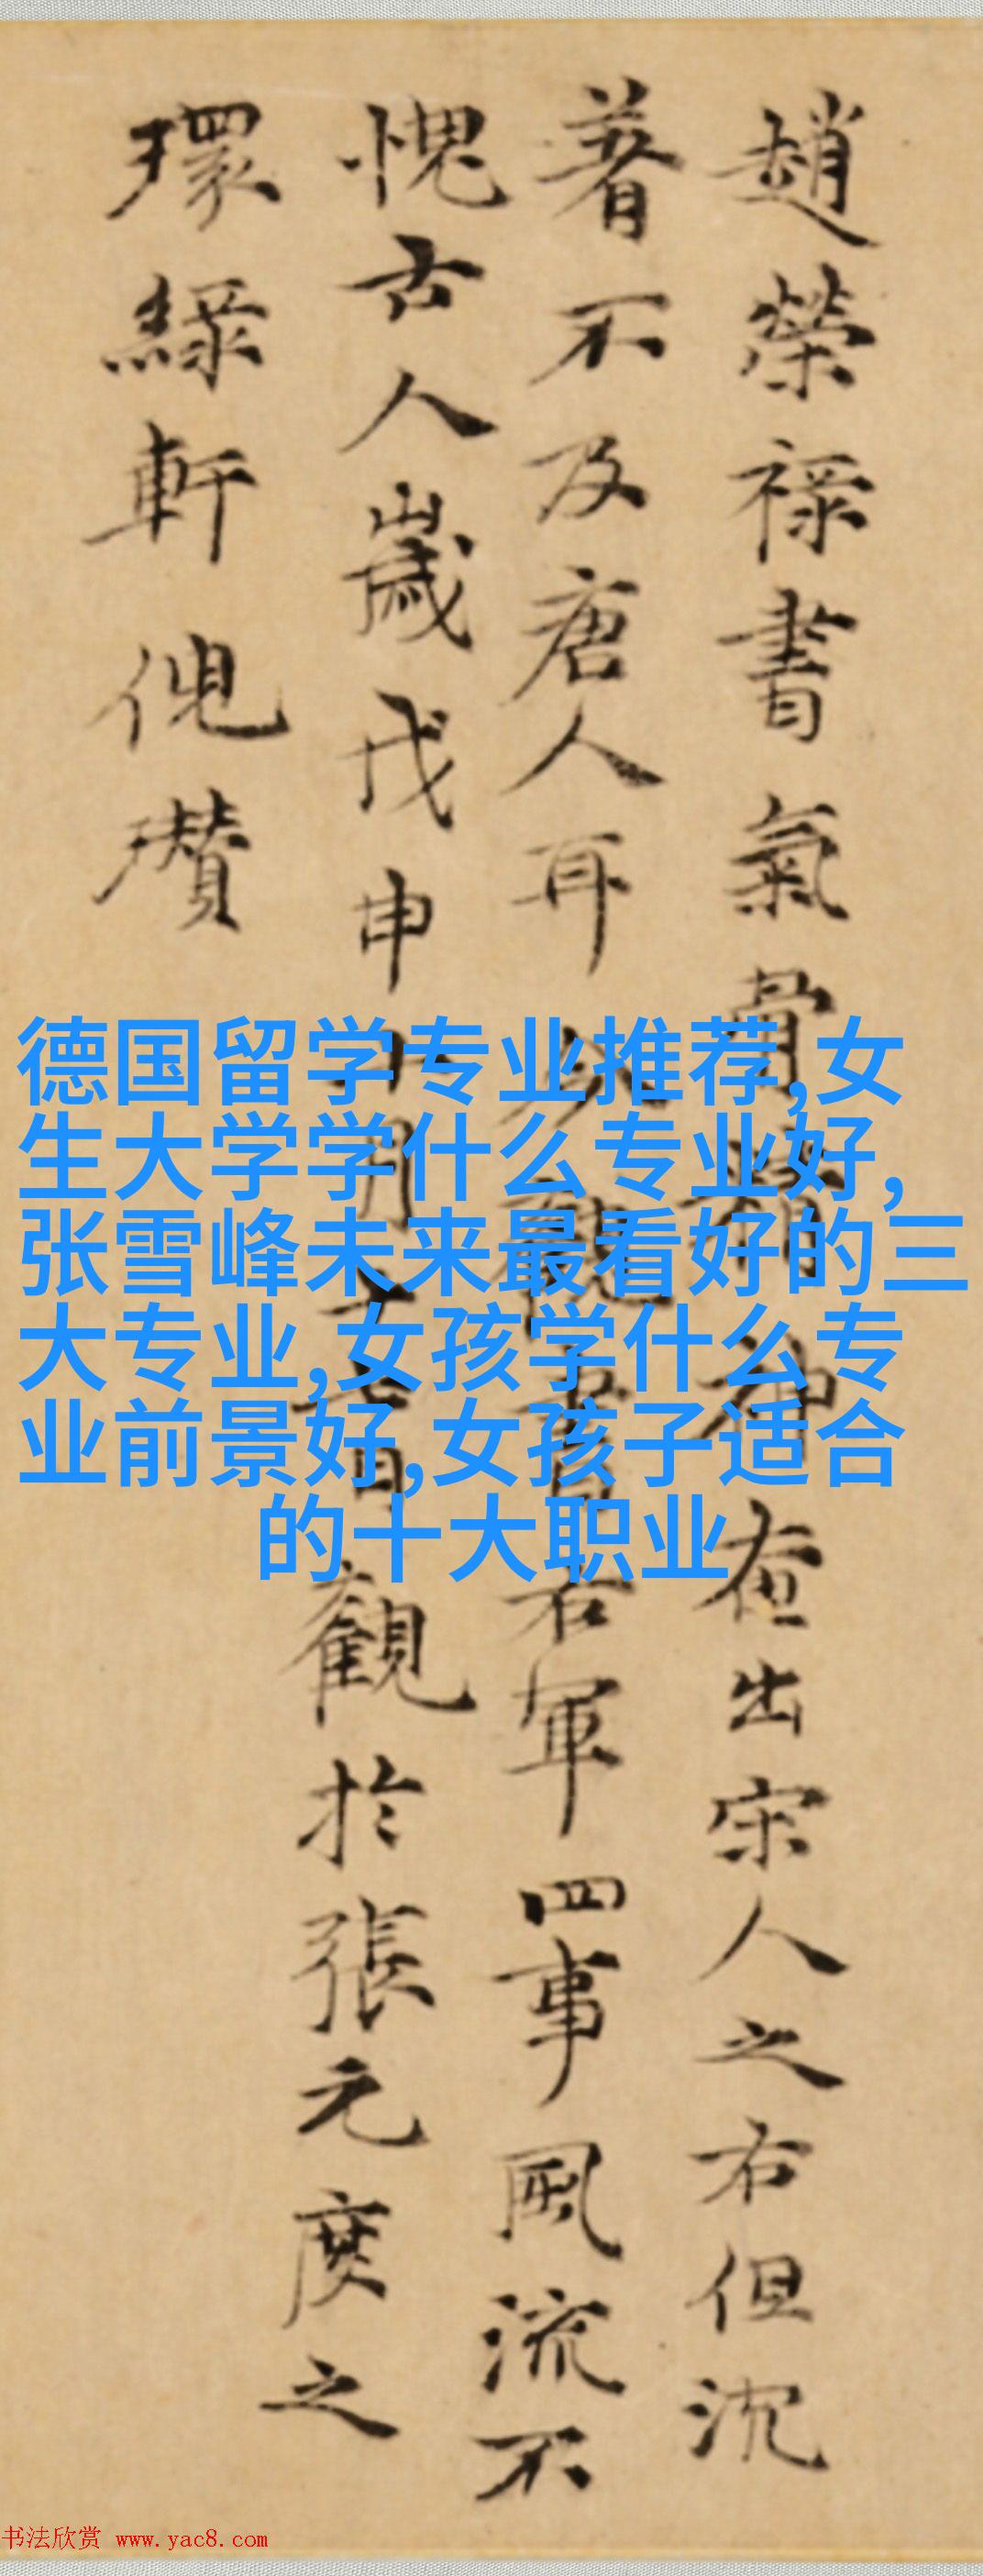 趙榮祿書氣骨
右出宋人之右但沈
著不及唐人耳
右軍四事風流不
愧古人歲戊申
觀於張元度之
環綠軒倪瓚
德国留学专业推荐,女
生大学学什么专业好,
张雪峰未来最看好的三
大专业,女孩学什么专
业前景好,女孩子适合
的十大职业
书法欣赏 www.yac8.com